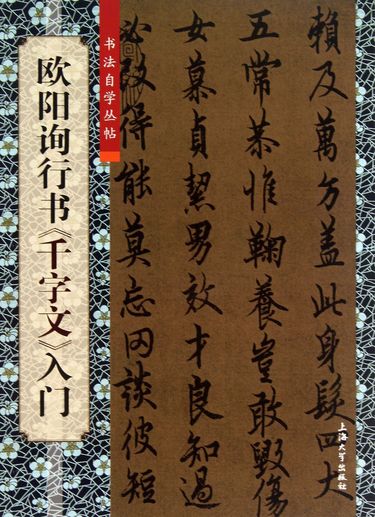 欧阳询行书《千字文》入门
书法自学丛帖
賴及萬方盖此身髮四大
五常恭惟鞠養豈敢毀傷
女慕貞絜男效才良知過
必改得能莫忘罔談彼短
上海大学出版社